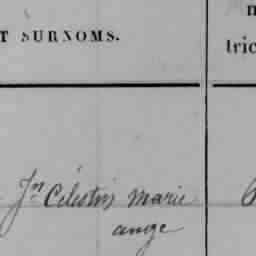 T SURNOMS.
tric
Jn Célestin Marie
ange